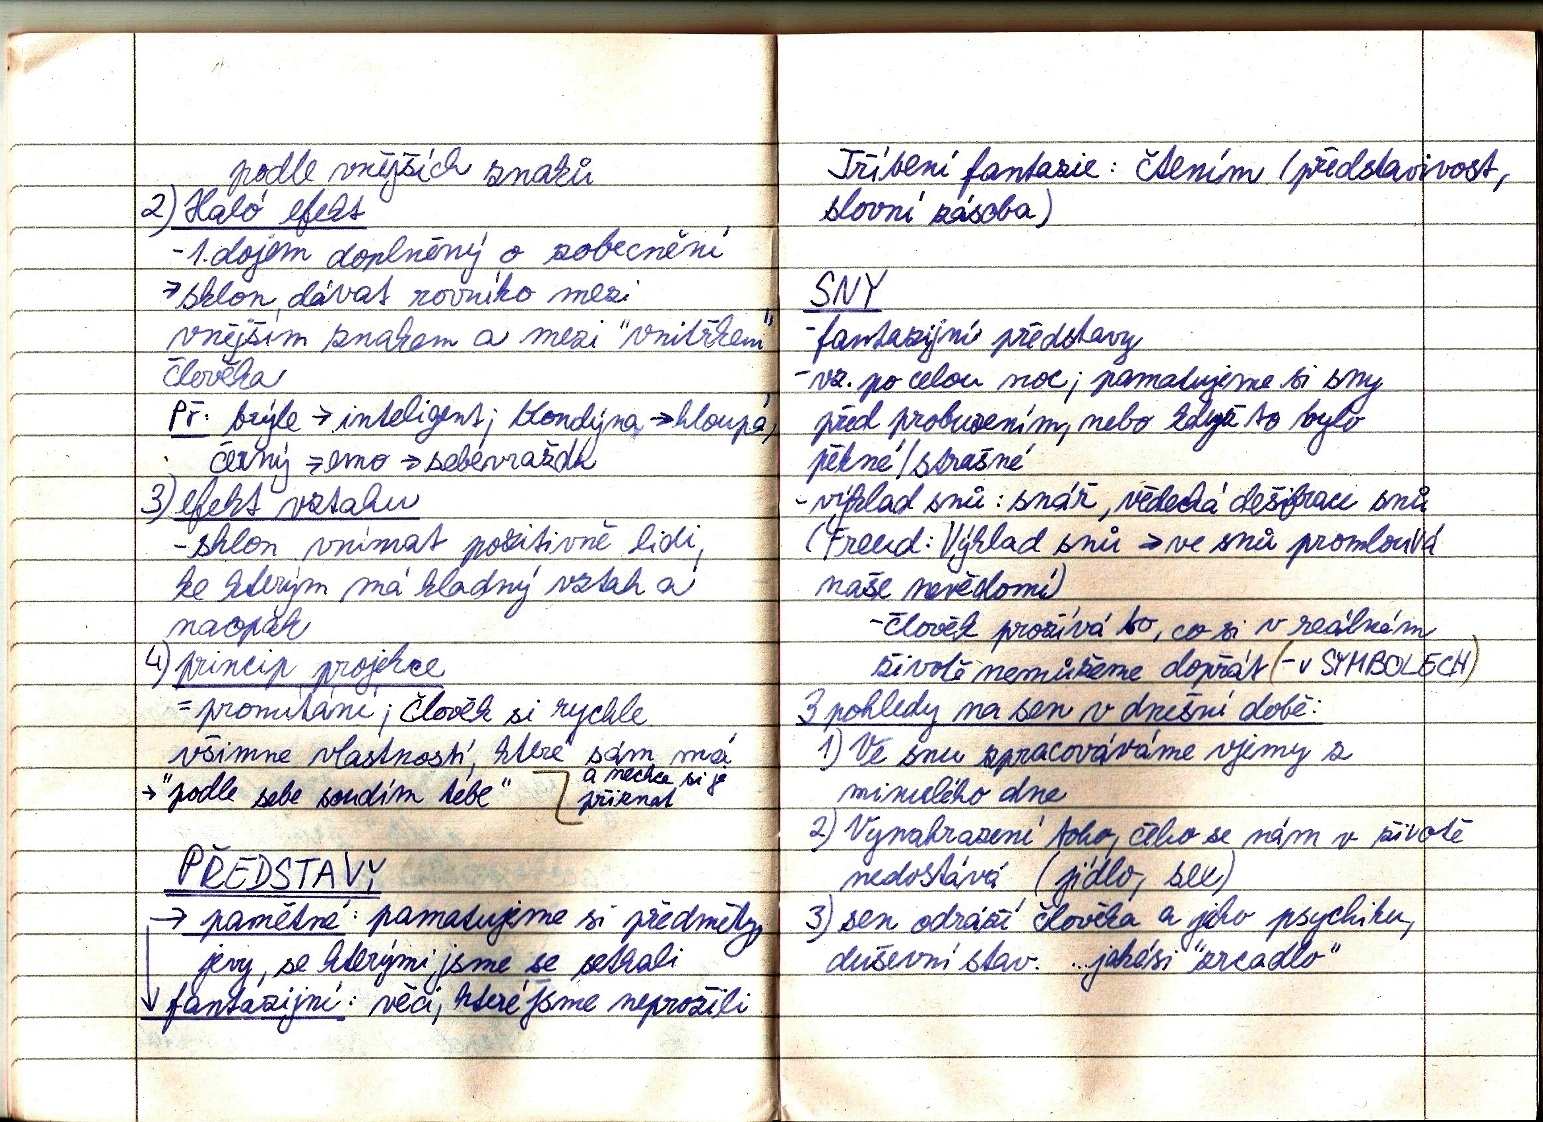 podle vnějších znaků
2) Haló efekt
- 1. dojem doplněný o zobecnění
→ sklon dávat rovnítko mezi
vnějším znakem a mezi "vnitřkem"
člověka
Př: brýle → inteligent; blondýna → hloupá,
černý → emo → sebevražda
3) efekt vztahu
- sklon vnímat pozitivně lidi,
ke kterým má kladný vztah a
naopak
4) princip projekce
= promítání; člověk si rychle
všimne vlastností, které sám má
a nechce si je
přiznat
→ "podle sebe soudím tebe"
PŘEDSTAVY
→ pamětné: pamatujeme si předměty,
jevy, se kterými jsme se setkali
fantazijní: věci, které jsme neprožili
Tříbení fantazie: čtením (představivost,
slovní zásoba)
SNY
- fantazijní představy
- vz. po celou noc; pamatujeme si sny
před probuzením, nebo když to bylo
pěkné/strašné
- výklad snů: snář, vědecká dešifrace snů
(Freud: Výklad snů → ve snů promlouvá
naše nevědomí)
- člověk prožívá to, co si v reálném
životě nemůžeme dopřát (- v SYMBOLECH)
3 pohledy na sen v dnešní době:
1) Ve snu zpracováváme vjemy z
minulého dne
2) Vynahrazení toho, čeho se nám v životě
nedostává (jídlo, sex)
3) sen odráží člověka a jeho psychiku,
duševní stav. ...jakési "zrcadlo"